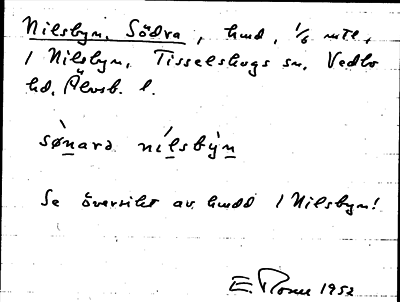 Nilsbyn, Södra, hmd, 1/6 mtl,
i Nilsbyn, Tisselskogs sn, Vedbo
hd, Älvsb. l.
sø̀nara nílsbỳn
Se översikt av hmdd i Nilsbyn!
E. Rosell 1952